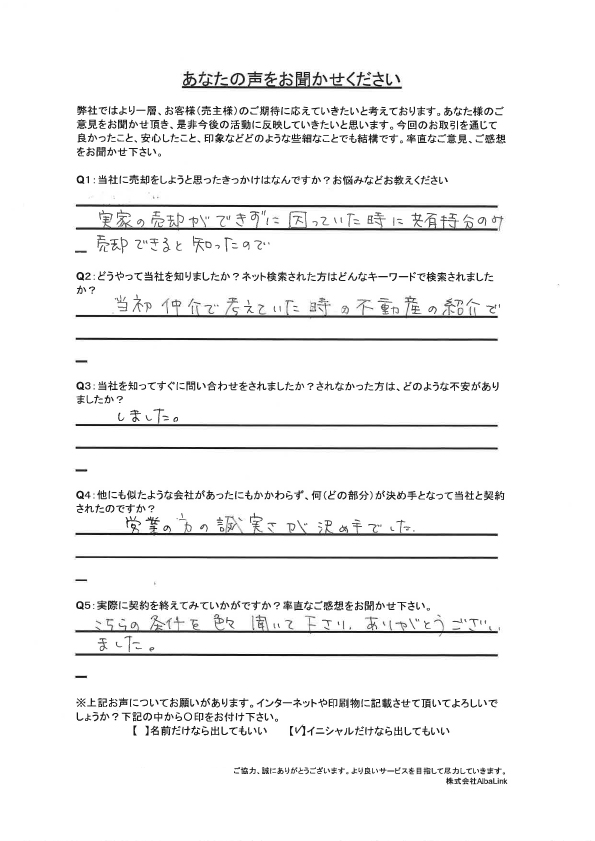 あなたの声をお聞かせください
弊社ではより一層、お客様(売主様)のご期待に応えていきたいと考えております。あなた様のご
意見をお聞かせ頂き、是非今後の活動に反映していきたいと思います。今回のお取引を通じて
良かったこと、安心したこと、印象などどのような些細なことでも結構です。率直なご意見、ご感想
をお聞かせ下さい。
Q1:当社に売却をしようと思ったきっかけはなんですか?お悩みなどお教えください
実家の売却ができずに困っていた時に共有持分のみ
売却できると知ったので
Q2:どうやって当社を知りましたか?ネット検索された方はどんなキーワードで検索されました
か?
当初仲介で考えていた時の不動産の紹介で
Q3:当社を知ってすぐに問い合わせをされましたか?されなかった方は、どのような不安があり
ましたか?
しました。
Q4:他にも似たような会社があったにもかかわらず、何(どの部分)が決め手となって当社と契約
されたのですか?
営業の方の誠実さが決め手でした.
Q5:実際に契約を終えてみていかがですか?率直なご感想をお聞かせ下さい。
こちらの条件を色々聞いて下さり、ありがとうござい
ました。
※上記お声についてお願いがあります。インターネットや印刷物に記載させて頂いてよろしいで
しょうか?下記の中から〇印をお付け下さい。
【 】名前だけなら出してもいい 【✓】イニシャルだけなら出してもいい
ご協力、誠にありがとうございます。より良いサービスを目指して尽力していきます。
株式会社AlbaLink